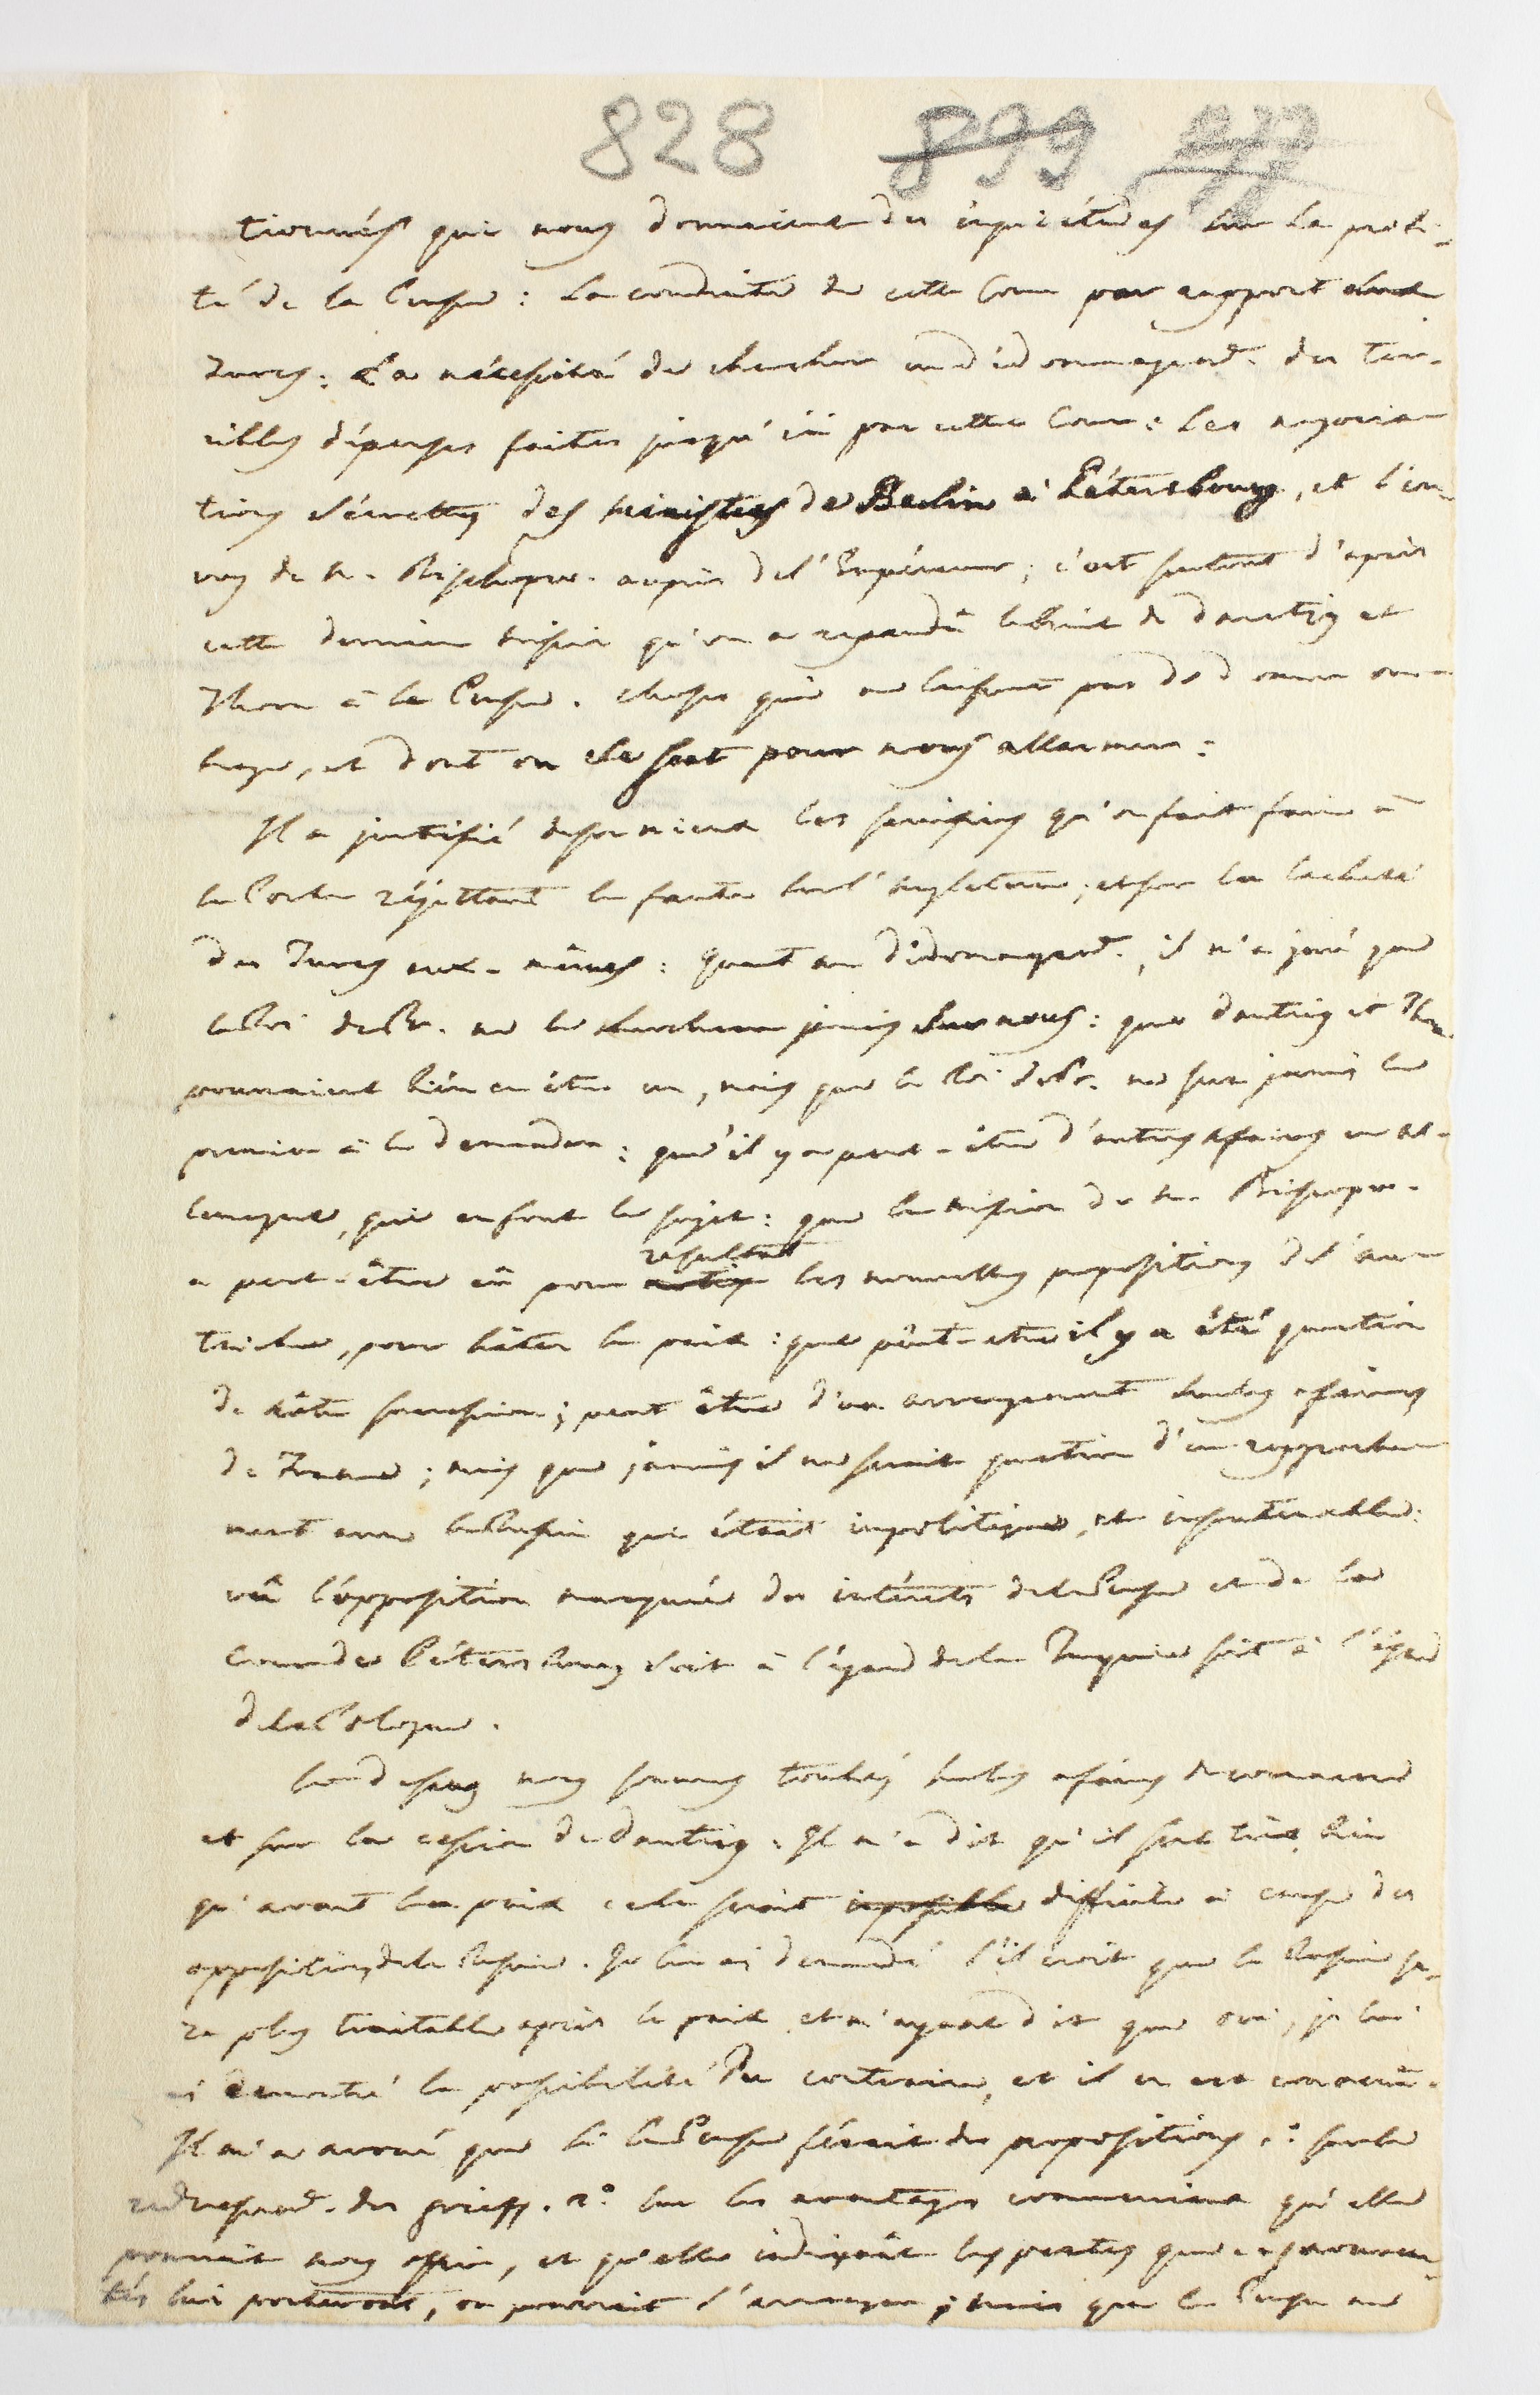 828 899
tionnés qui nous donnaient des inquiétudes sur la probi-
té de la Prusse : La conduite de cette Cour par rapport aux
Turcs : La nécessité de chercher un dédommagemt. des ter-
ribles dépenses faites jusqu'ici par cette Cour : Les negocia-
tions sécrettes des ministres de Berlin à Pétersbourg, et l'en-
voy de M. Bischopw. auprès de l'Empereur ; c'est surtout d'après
cette derniere mission qu'on a repandû le bruit de Dantzig et
Thorn à la Prusse. choses qui ne laissent pas de donner om-
brage, et dont on se sert pour nous allarmer :
Il a justifié de son mieux les sacrifices qu'on fait faire à
la Porte réjettant la faute sur l'Angleterre, et sur la lacheté
des Turcs eux-mêmes : Quant au dédomagemt., il m'a juré que
le Roi de Pr. ne le cherchera jamais sur nous : que Dantzig et Thorn
pourraient bien en être un, mais que le Roi de Pr. ne sera jamais le
premier à le demander : qu'il y a peut-être d'autres afaires en Al-
lemagne, qui en font le sujet : que la mission de M. Bishopw.
a peut-être eû pour resultat les nouvelles propositions de l'Au-
triche, pour hâter la paix : que peut-etre il y a été question
de nôtre succession ; peut être d'un arrangement sur les afaires
de France ; mais que jamais il ne serait question d'un rapproche-
ment avec la Russie qui étoit impolitique, et insoutenable :
vû l'opposition marquée des intérêts de la Prusse et de la
Cour de Pétersbourg soit à l'égard de la Turquie soit à l'égard
de la Pologne.
La dessus nous sommes tombés sur les afaires de commerce
et sur la cession de Dantzig. Il m'a dit qu'il sent très bien
qu'avant la paix cela seroit impossible difficile à cause des
oppositions de la Russie. Je lui ai demandé s'il croit que la Russie se-
ra plus traitable après la paix et m'ayant dit que oui, je lui
ai demontré la possibilité du contraire, et il en est convenu.
Il m'a avoué que si la Prusse féroit des propositions 1° sur le
redressemt. des griefs. 2° sur les avantages commerciaux qu'elle
pourrait nous offrir, et qu'elle indiquât les pertes que
tés lui porteroit, on pourrait s'arranger ; mais que la Prusse ne